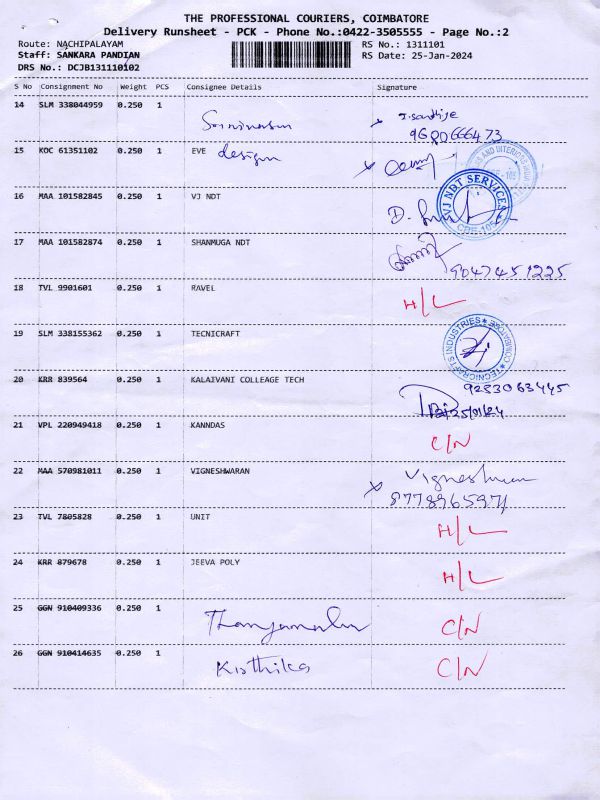 THE PROFESSIONAL COURIERS, COIMBATORE
Delivery Runsheet - PCK - Phone No.:0422-3505555 - Page No.:2
Route: NACHIPALAYAM RS No.: 1311101
Staff: SANKARA PANDIAN RS Date: 25-Jan-2024
DRS No.: DCJB131110102
S No Consignment No Weight PCS Consignee Details Signature
14 SLM 338044959 0.250 1
15 KOC 61351102 0.250 1 EVE design
16 MAA 101582845 0.250 1 VJ NDT
VJ NDT SERVICES
CBE-105
17 MAA 101582874 0.250 1 SHANMUGA NDT
9047451225
18 TVL 9901601 0.250 1 RAVEL H/L
19 SLM 338155362 0.250 1 TECNICRAFT
TECNICRAFTS INDUSTRIES ★ COIMBATORE ★
20 KRR 839564 0.250 1 KALAIVANI COLLEAGE TECH 9253063445
25/01/24
21 VPL 220949418 0.250 1 KANNDAS C/N
22 MAA 570981011 0.250 1 VIGNESHWARAN Vigneshwaran
23 TVL 7805828 0.250 1 UNIT H/L
24 KRR 879678 0.250 1 JEEVA POLY H/L
25 GGN 910409336 0.250 1 C/N
26 GGN 910414635 0.250 1 Kisthika C/N